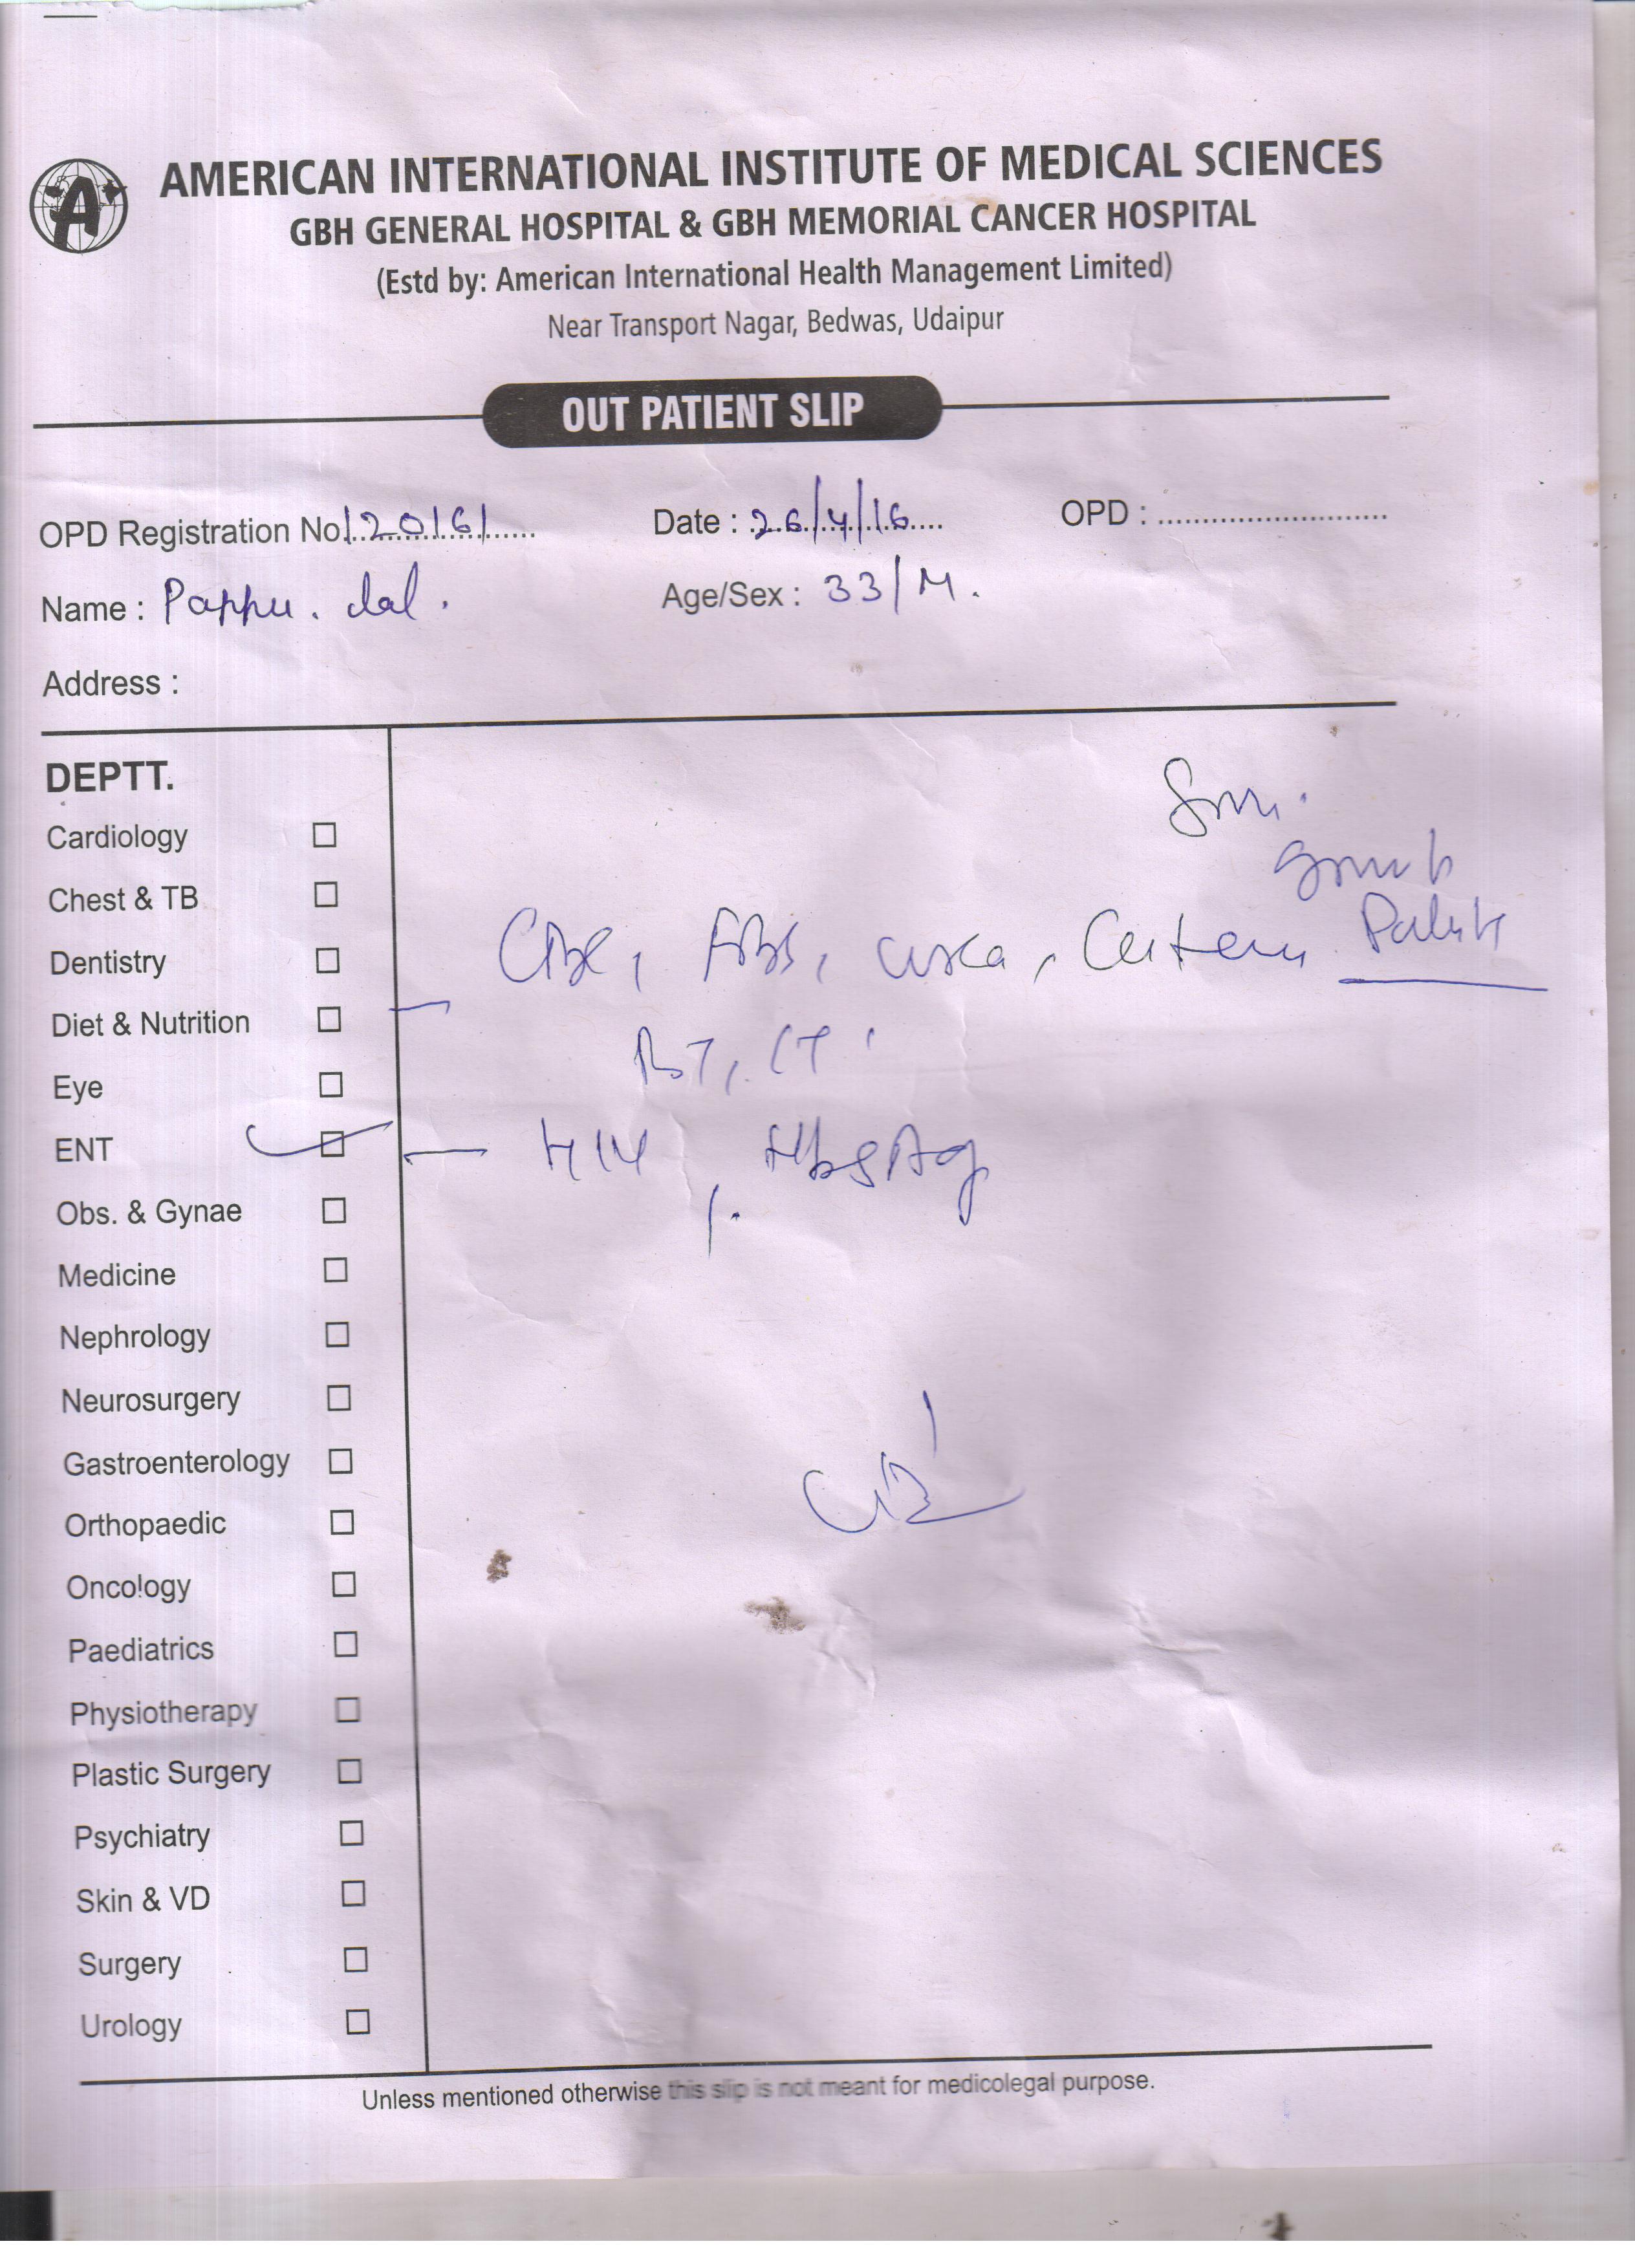 AMERICAN INTERNATIONAL INSTITUTE OF MEDICAL SCIENCES
GBH GENERAL HOSPITAL & GBH MEMORIAL CANCER HOSPITAL
(Estd by: American International Health Management Limited)
Near Transport Nagar, Bedwas, Udaipur
OUT PATIENT SLIP
OPD Registration No. 120161 Date : 26/4/16 OPD :
Name : Pappu. Lal. Age/Sex : 33/M.
Address :
DEPTT.
Cardiology
Chest & TB
Dentistry
Diet & Nutrition
Eye
ENT
Obs. & Gynae
Medicine
Nephrology
Neurosurgery
Gastroenterology
Orthopaedic
Oncology
Paediatrics
Physiotherapy
Plastic Surgery
Psychiatry
Skin & VD
Surgery
Urology
CBC, FBS, urea,
BT, CT
HIV, HbsAg
Unless mentioned otherwise this slip is not meant for medicolegal purpose.